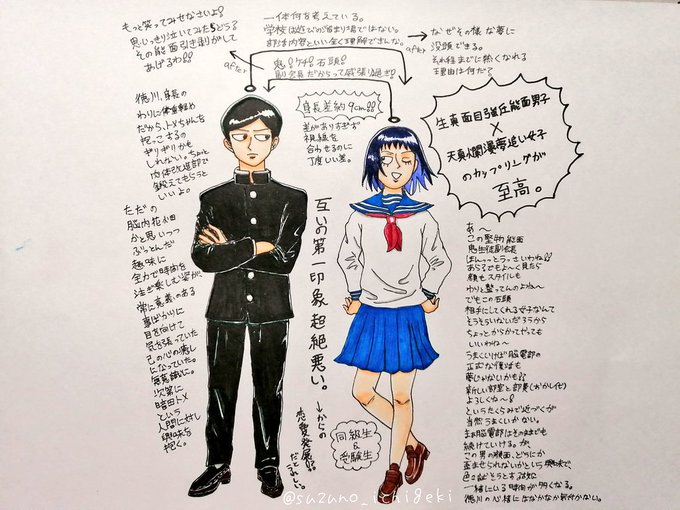 もっと笑ってみせなさいよ!
思いっきり泣いてみたらどう?
その能面引き剥がして
あげるわ!!
after
一体何を考えている。
学校は遊びの溜まり場ではない。
部活内容といい全く理解できんな。
鬼!ケチ!石頭!
副会長だからって威張り過ぎ!
after
なぜその様な夢に
没頭できる。
それ程までに熱くなれる
理由は何だ?
身長差約9cm!!
差がありすぎず
視線を
合わせるのに
丁度いい差。
生真面目強圧能面男子
×
天真爛漫夢追い女子
のカップリングが
至高。
徳川、身長の
わりに体重軽め
だから、トメちゃんを
抱っこするの
ギリギリかも
しれない。ちょっと
肉体改造部で
鍛えてもらうと
いいよ。
ただの
脳内花畑
かと思いつつ
ぶっとんだ
趣味に
全力で時間を
注ぎ楽しむ姿が、
常に意義のある
事ばかりに
目を向けて
気を張っていた
己の心の癒し
になっていた。
無意識に。
次第に
暗田トメ
という
人間に対し
興味を
抱く。
互いの第一印象超絶悪い。
→からの
恋愛発展!!
だとうれしい。
同級生
&
受験生
あ〜
この堅物能面
鬼生徒副会長
ほんっっとうっさいわね!!
あらでもよ〜く見たら
顔もスタイルも
わりと整ってんのよね〜
でもこの石頭
相手にしてくれる女子なんて
そうそういないだろうから
ちょっとからかってやっても
いいわね〜
うまくいけば脳電部の
正式な復活も
夢じゃないかも!!
新しい部室と部費(おかし代)
よろしくね〜!
というたくらみで近づくが
当然うまくいかない。
この男の横面、どうにか
歪ませられないかという興味で、
一緒にいる時間が多くなる。
徳川の心緒にはなかなか気付かない。
@suzuno_ichigeki